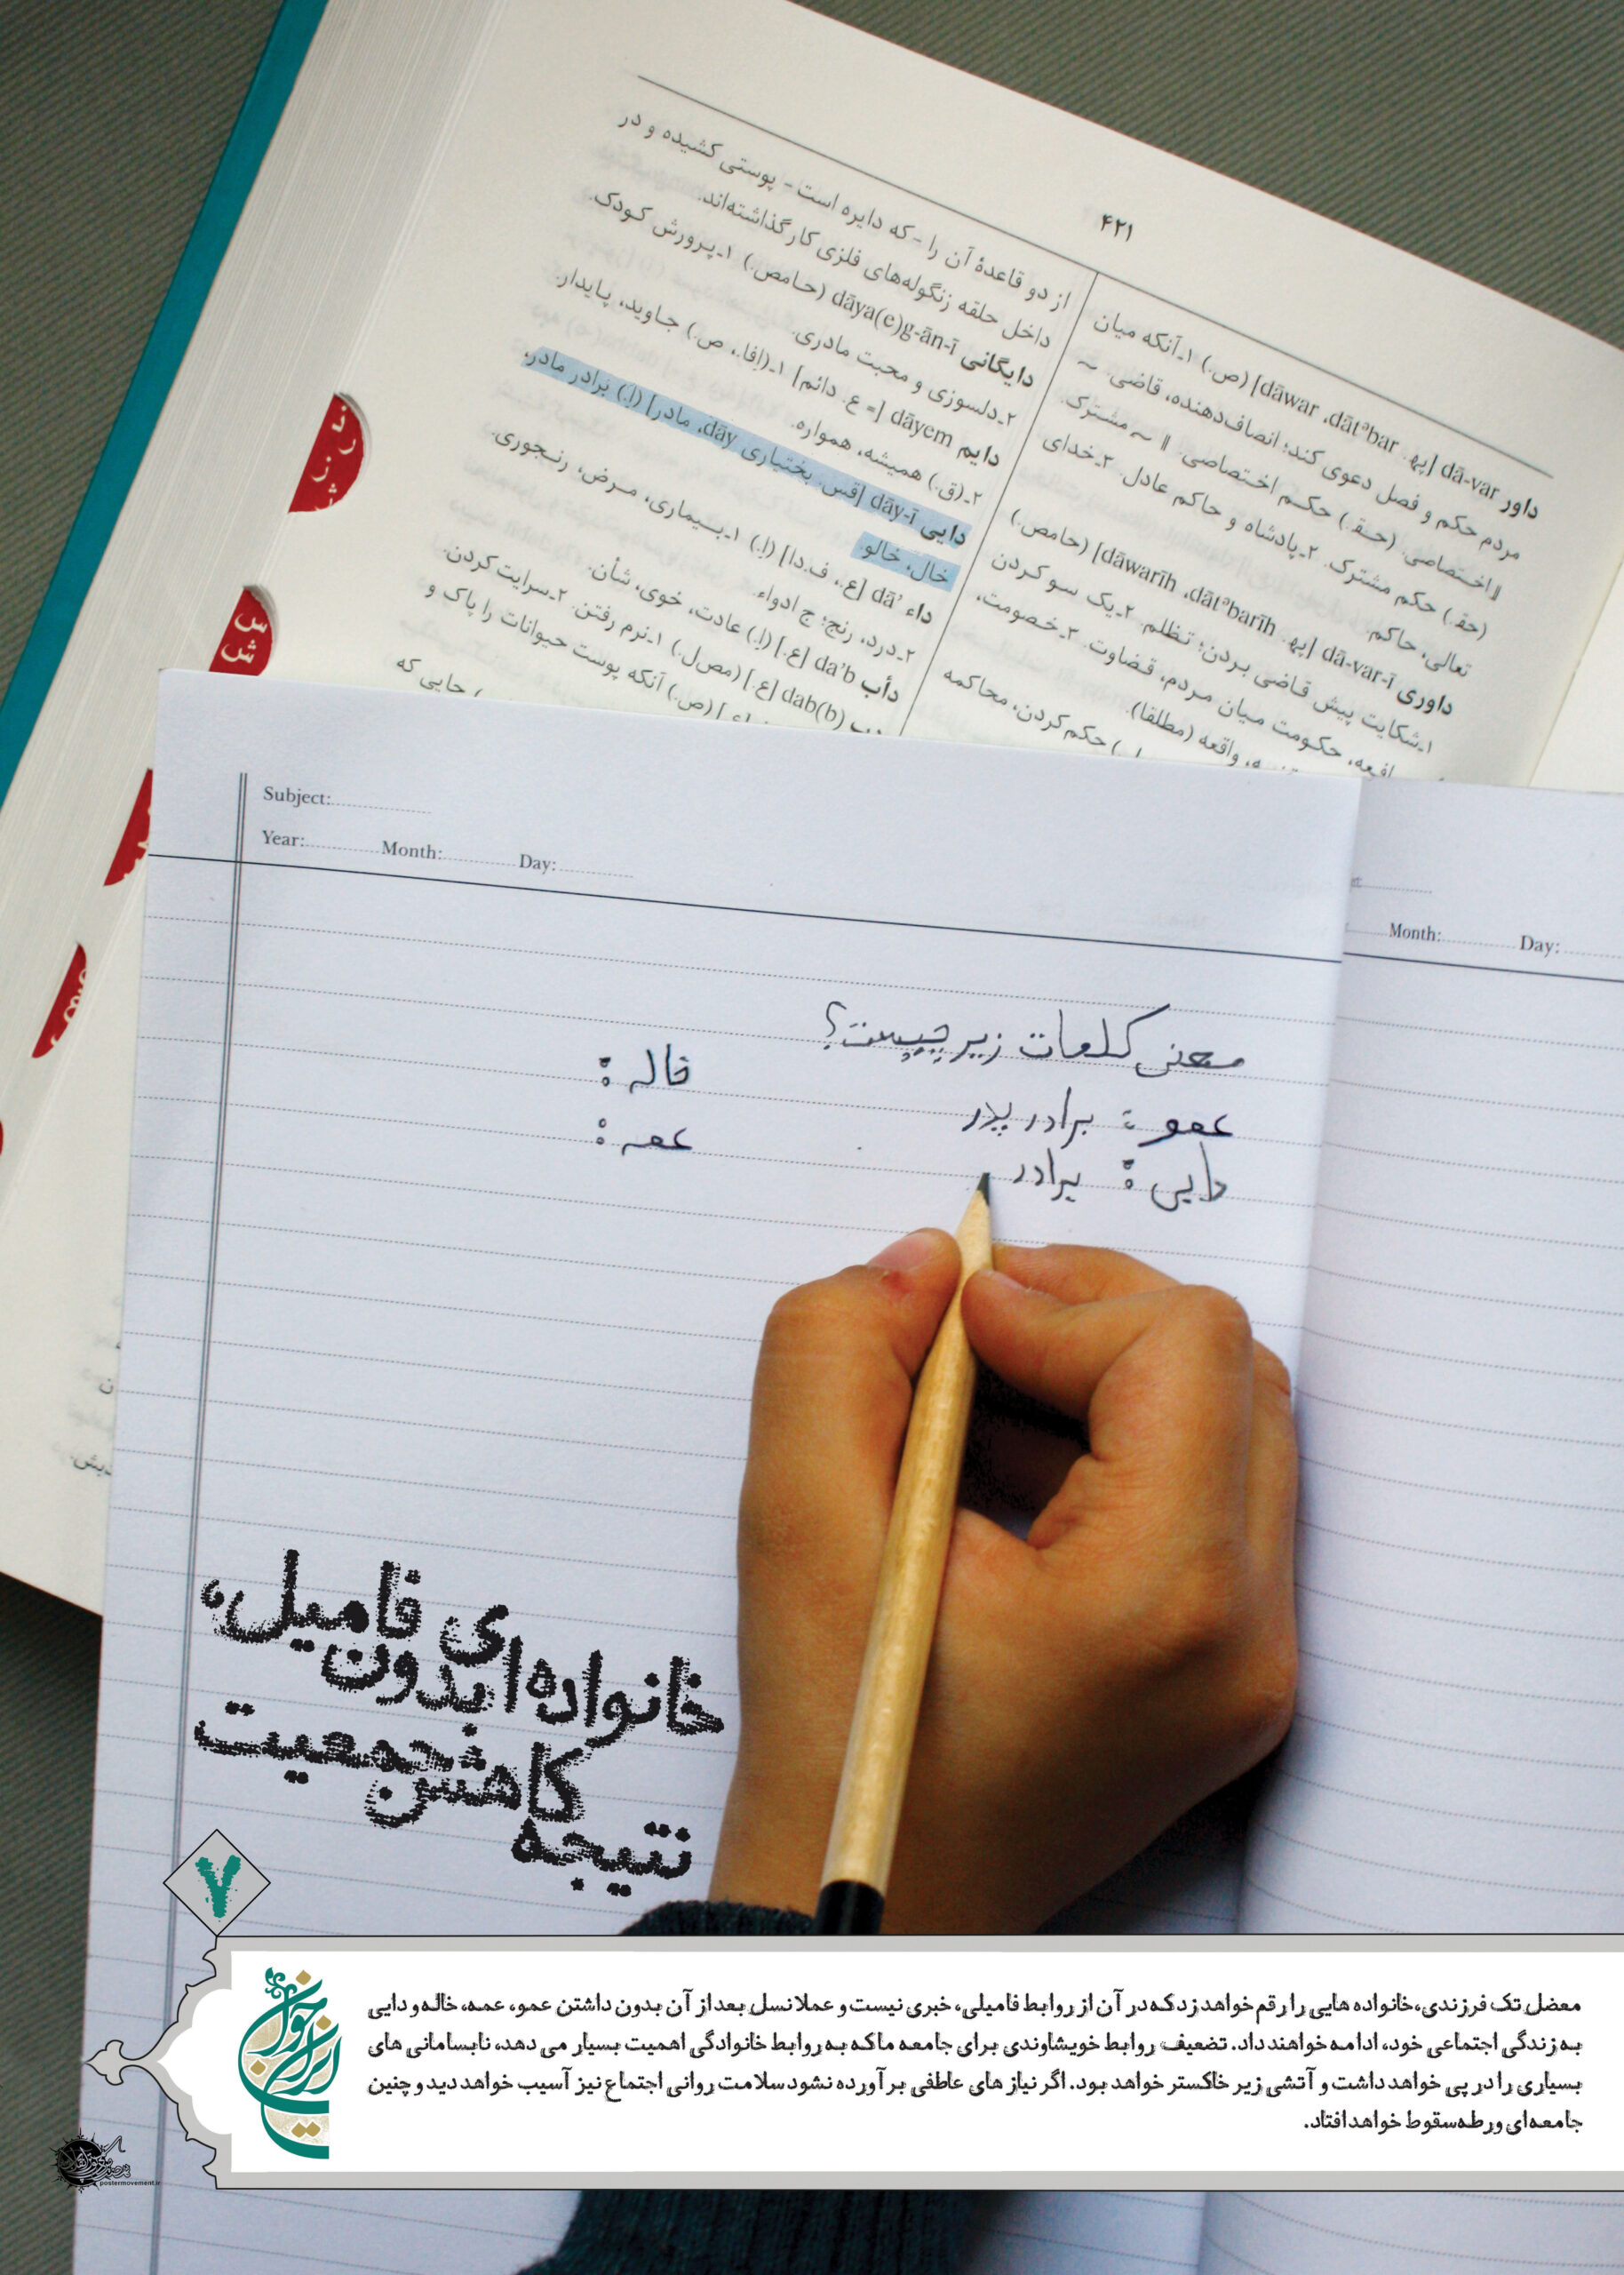 ۴۲۱
داور dā-var [په. dāwar ،dātᵊbar] (ص.) ۱ـ آنکه میان
مردم حکم و فصل دعوی کند؛ انصاف‌دهنده، قاضی. ~
اختصاصی. (حق.) حکم اختصاصی. ‖ ~ مشترک.
(حق.) حکم مشترک. ۲ـ پادشاه و حاکم عادل. ۳ـ خدای
تعالی، حاکم
داوری dā-var-ī [په. dāwarīh ،dātᵊbarīh] (حامص.)
۱ـ شکایت پیش قاضی بردن؛ تظلم. ۲ـ یک سو کردن
حکومت میان مردم، قضاوت. ۳ـ خصومت،
واقعه (مطلقا).
) حکم کردن، محاکمه
از دو قاعدهٔ آن را - که دایره است - پوستی کشیده و در
داخل حلقه زنگوله‌های فلزی کار گذاشته‌اند.
دایگانی dāya(e)g-ān-ī (حامص.) ۱ـ پرورش کودک.
۲ـ دلسوزی و محبت مادری.
دایم dāyem [= ع. دائم] ۱ـ (اِفا.، ص.) جاوید، پایدار.
۲ـ (ق.) همیشه، همواره.
دایی dāy-ī [قس. بختیاری dāy، مادر] (اِ.) برادر مادر،
خال، خالو.
داء dā’ [ع.، ف.دا] (اِ.) ۱ـ بیماری، مرض، رنجوری.
۲ـ درد، رنج؛ ج ادواء.
دأب da’b [ع.] (اِ.) عادت، خوی، شأن.
dab(b) [ع.] (مص‌ل.) ۱ـ نرم رفتن. ۲ـ سرایت کردن.
(ص.) آنکه پوست حیوانات را پاک و
) جایی که
ر
ز
ژ
س
ش
Subject:
Year: Month: Day:
Month: Day:
معنی کلمات زیر چیست؟
عمو : برادر پدر
دایی : برادر
خاله :
عمه :
خانواده ای بدون فامیل،
نتیجه کاهش جمعیت
۷
ایران جوان
معضل تک فرزندی، خانواده هایی را رقم خواهد زد که در آن از روابط فامیلی، خبری نیست و عملا نسل بعد از آن بدون داشتن عمو، عمه، خاله و دایی
به زندگی اجتماعی خود، ادامه خواهند داد. تضعیف روابط خویشاوندی برای جامعه ما که به روابط خانوادگی اهمیت بسیار می دهد، نابسامانی های
بسیاری را در پی خواهد داشت و آتشی زیر خاکستر خواهد بود. اگر نیاز های عاطفی برآورده نشود سلامت روانی اجتماع نیز آسیب خواهد دید و چنین
جامعه ای ورطه سقوط خواهد افتاد.
postermovement.ir